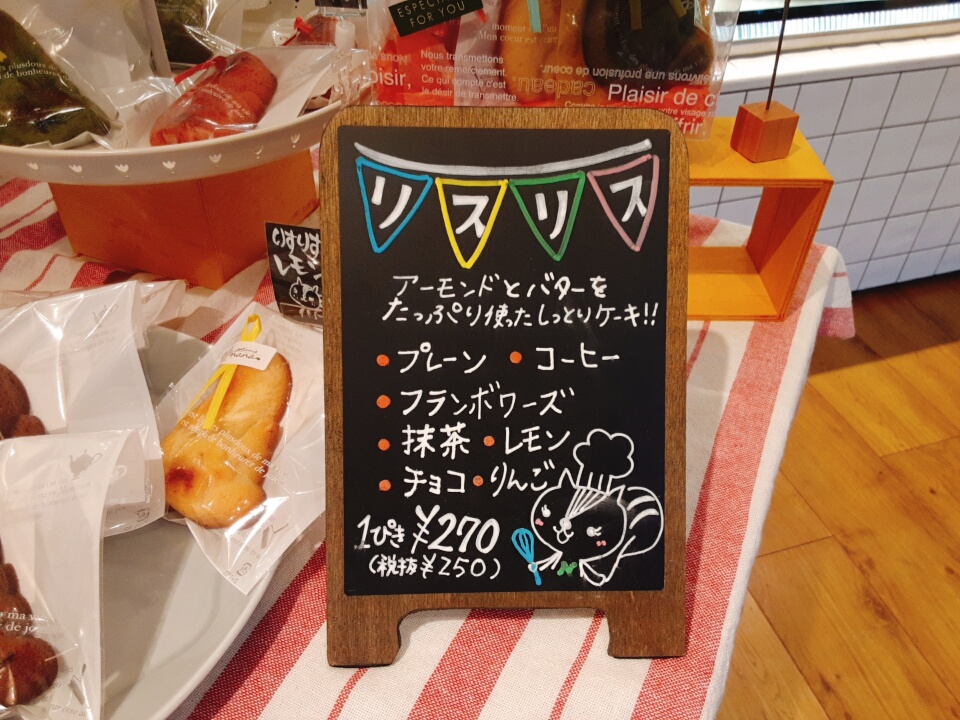 ESPECIALLY
FOR YOU
Nous transmettons
votre remerciement.
Ce qui compte c'est
le désir de transmettre.
cadeau
Plaisir de
リスリス
アーモンドとバターを
たっぷり使ったしっとりケーキ!!
・プレーン ・コーヒー
・フランボワーズ
・抹茶 ・レモン
・チョコ ・りんご
1ぴき ¥270
(税抜¥250)
りすりす
レモン